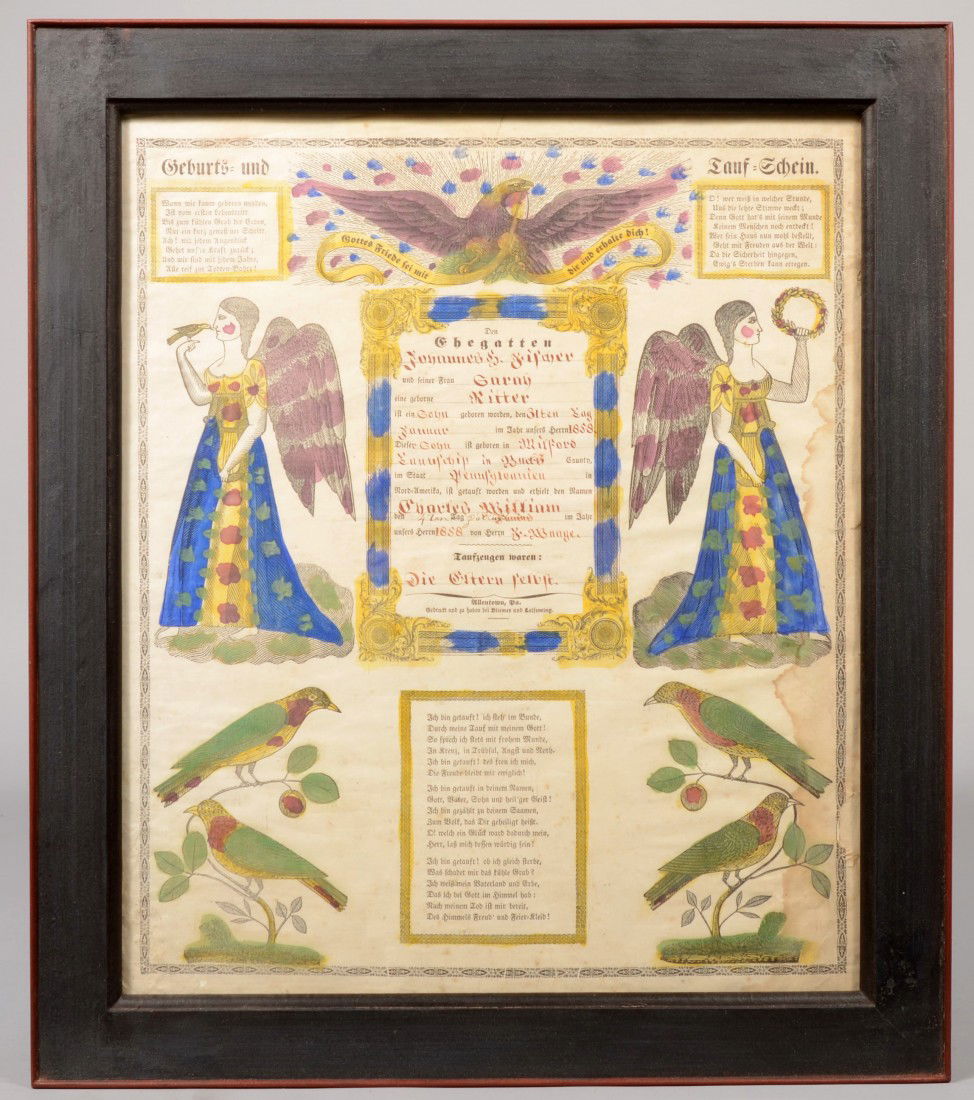 Geburts- und
Tauf-Schein.
Wann wir kaum geboren werden,
Ist vom ersten Lebenstritt
Bis zum kühlen Grab der Erden,
Nur ein kurz gemeß'ner Schritt.
Ach! mit jedem Augenblick
Gehet unsre Kraft zurück;
Und wir sind mit jedem Jahre,
Alle reif zur Todten-Bahre!
Gottes Friede sei mit
dir und erhalte dich!
O! wer weiß in welcher Stunde,
Uns die letzte Stimme weckt;
Denn Gott hat's mit seinem Munde
Keinem Menschen noch entdeckt!
Wer sein Haus nun wohl bestellt,
Geht mit Freuden aus der Welt;
Da die Sicherheit hingegen,
Ewig's Sterben kann erregen.
Den
Ehegatten
Johannes H. Fischer
und seiner Frau Sarah
eine geborne Ritter
ist ein Sohn geboren worden, den Tag
Januar im Jahr unsers Herrn 1858
Dieser Sohn ist geboren in Milford
Taunschip in Bucks County,
im Staat Pennsylvanien in
Nord-Amerika, ist getauft worden und erhielt den Namen
Charles William
den Tag im Jahr
unsers Herrn 1858 von Herrn F. Waage.
Taufzeugen waren:
Die Eltern selbst.
Allentown, Pa.
Gedruckt und zu haben bei Blumer und Leisenring.
Ich bin getauft! ich steh' im Bunde,
Durch meine Tauf mit meinem Gott!
So sprech ich stets mit frohem Munde,
In Kreuz, in Trübsal, Angst und Noth.
Ich bin getauft! des freu ich mich,
Die Freude bleibt mir ewiglich!
Ich bin getauft in deinem Namen,
Gott, Vater, Sohn und heil'ger Geist!
Ich bin gezählt zu deinem Saamen,
Zum Volk, das Dir geheiligt heißt.
O! welch ein Glück ward dadurch mein,
Herr, laß mich dessen würdig sein!
Ich bin getauft! ob ich gleich sterbe,
Was schadet mir das kühle Grab?
Ich weiß mein Vaterland und Erbe,
Das ich bei Gott im Himmel hab:
Nach meinem Tod ist mir bereit,
Des Himmels Freud- und Feier-Kleid!